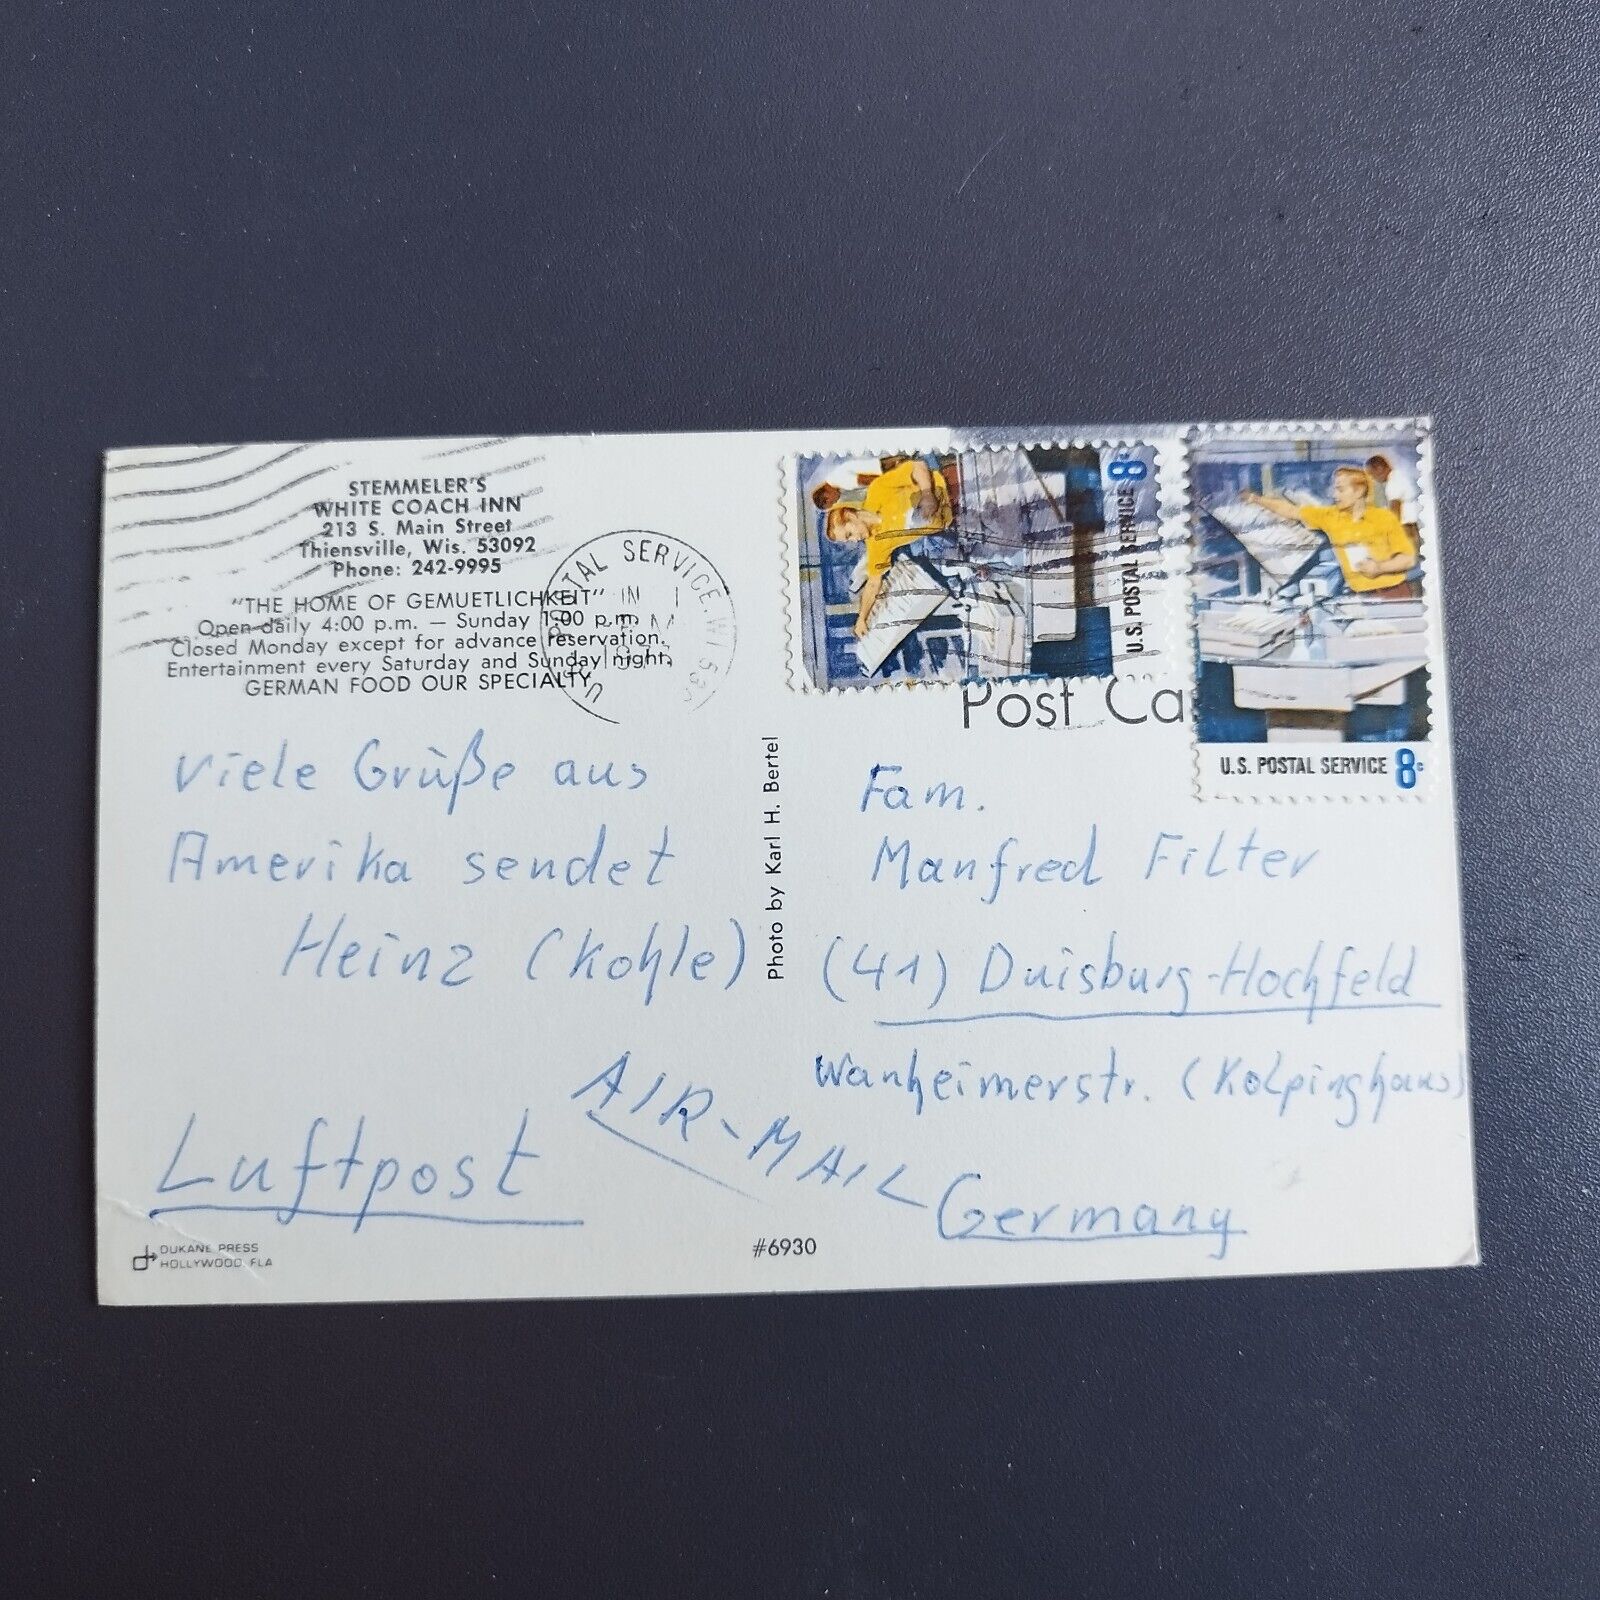 STEMMELER'S
WHITE COACH INN
213 S. Main Street
Thiensville, Wis. 53092
Phone: 242-9995
"THE HOME OF GEMUETLICHKEIT"
Open daily 4:00 p.m. — Sunday 1:00 p.m.
Closed Monday except for advance reservation.
Entertainment every Saturday and Sunday night.
GERMAN FOOD OUR SPECIALTY
POSTAL SERVICE, WI
U.S. POSTAL SERVICE 8c
U.S. POSTAL SERVICE 8c
Post Ca
Viele Grüße aus
Amerika sendet
Heinz (Kohle)
Luftpost
AIR-MAIL
DUKANE PRESS
HOLLYWOOD, FLA
Photo by Karl H. Bertel
#6930
Fam.
Manfred Filter
(41) Duisburg-Hochfeld
Wanheimerstr. (Kolpinghaus)
Germany